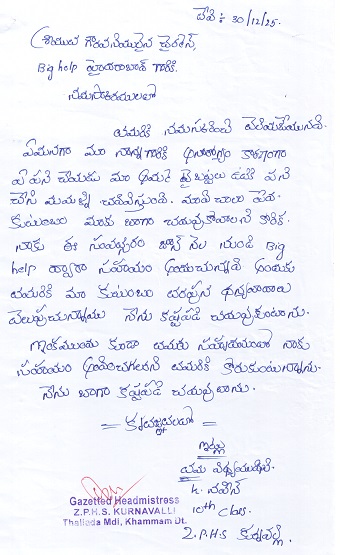 తేది : 30/12/25.
శ్రీయుత గౌరవనీయులైన డైరెక్టర్,
Big help హైదరాబాద్ గారికి.
నమస్కారములతో
తమరికి నమస్కరించి వ్రాయునది.
ఏమనగా మా నాన్నగారికి అనారోగ్యం కారణంగా
ఏ పని చేయడు మా అమ్మ బట్టలు ఉతికే పని
చేసి మమ్మల్ని చదివిస్తుంది. మాది చాలా పేద
కుటుంబం మాకు బాగా చదువుకోవాలని కోరిక.
నాకు ఈ సంవత్సరం జూన్ నెల నుండి Big
help ద్వారా సహాయం అందుచున్నది అందుకు
తమరికి మా కుటుంబం తరపున ధన్యవాదాలు
తెలుపుచున్నాము నేను కష్టపడి చదువుకుంటాను.
ఇకముందు కూడా తమరు నాకు
సహాయం అందించగలరని తమరికి కోరుకుంటున్నాను.
నేను బాగా కష్టపడి చదువుతాను.
= కృతజ్ఞతలతో =
ఇట్లు
తమ విధ్యార్థి
K. నవీన్
10th Class.
Z.P.H.S కుర్నవల్లి.
Gazetted Headmistress
Z.P.H.S. KURNAVALLI
Thallada Mdl, Khammam Dt.